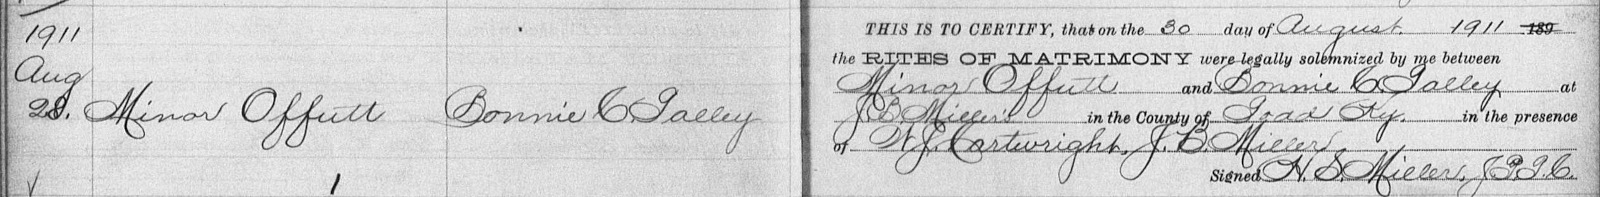 1911
Aug
28. Minor Offutt Bonnie C Talley
1
THIS IS TO CERTIFY, that on the 30 day of August 1911 189
the RITES OF MATRIMONY were legally solemnized by me between
Minor Offutt and Bonnie C Talley at
J B Miller's in the County of Todd Ky. in the presence
of W J Cartwright, J. B. Miller
Signed H. S. Miller, J.P.T.C.